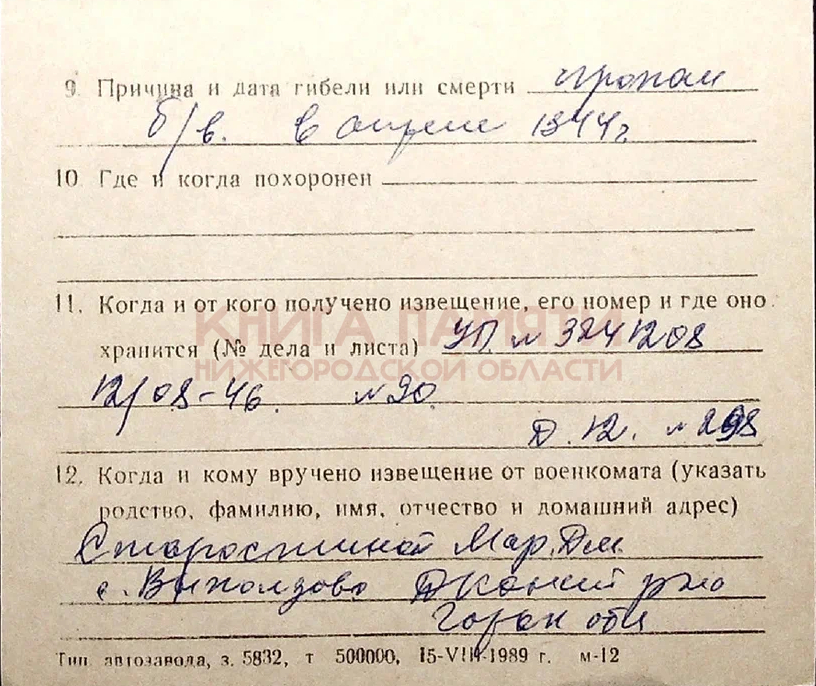 9. Причина и дата гибели или смерти пропал
б/в. в апреле 1944г
10. Где и когда похоронен
11. Когда и от кого получено извещение, его номер и где оно
хранится (№ дела и листа) УП. № 3241208
КНИГА ПАМЯТИ
НИЖЕГОРОДСКОЙ ОБЛАСТИ
12/08-46. № 90.
Д. 12. №
12. Когда и кому вручено извещение от военкомата (указать
родство, фамилию, имя, отчество и домашний адрес)
Старостиной Мар. Дм.
с. Выползово р-на
Горьк обл
Тип автозавода, з. 5832, т 500000, 15-VIII-1989 г. м-12